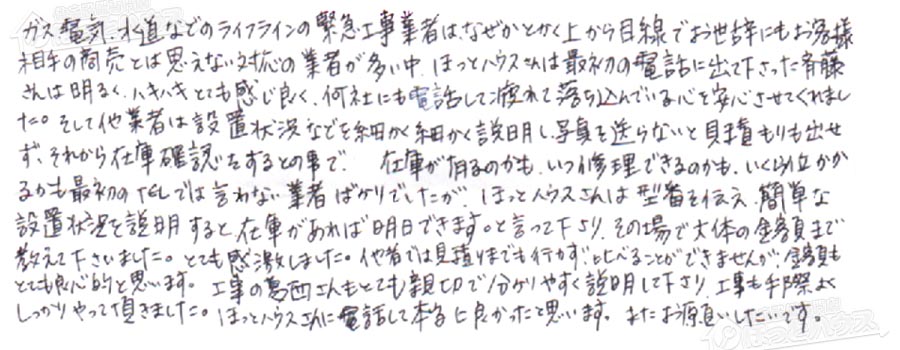 ガス、電気、水道などのライフラインの緊急工事業者は、なぜかとかく上から目線でお世辞にもお客様
相手の商売とは思えない対応の業者が多い中、ほっとハウスさんは最初の電話に出て下さった斉藤
さんは明るく、ハキハキとても感じ良く、何社にも電話して疲れて落ち込んでいる心を安心させてくれまし
た。そして他業者は設置状況などを細かく細かく説明し、写真を送らないと見積もりも出せ
ず、それから在庫確認をするとの事で、在庫が有るのかも、いつ修理できるのかも、いくら位かか
るかも最初のTELでは言わない業者ばかりでしたが、ほっとハウスさんは型番を伝え、簡単な
設置状況を説明すると、在庫があれば明日できます。と言って下さり、その場で大体の金額まで
教えて下さいました。とても感激しました。他者では見積りまでも行かず、比べることができませんが、金額も
とても良心的と思います。工事の葛西さんもとても親切で分かりやすく説明して下さり、工事も手際よく
しっかりやって頂きました。ほっとハウスさんに電話して本当に良かったと思います。またお願いしたいです。